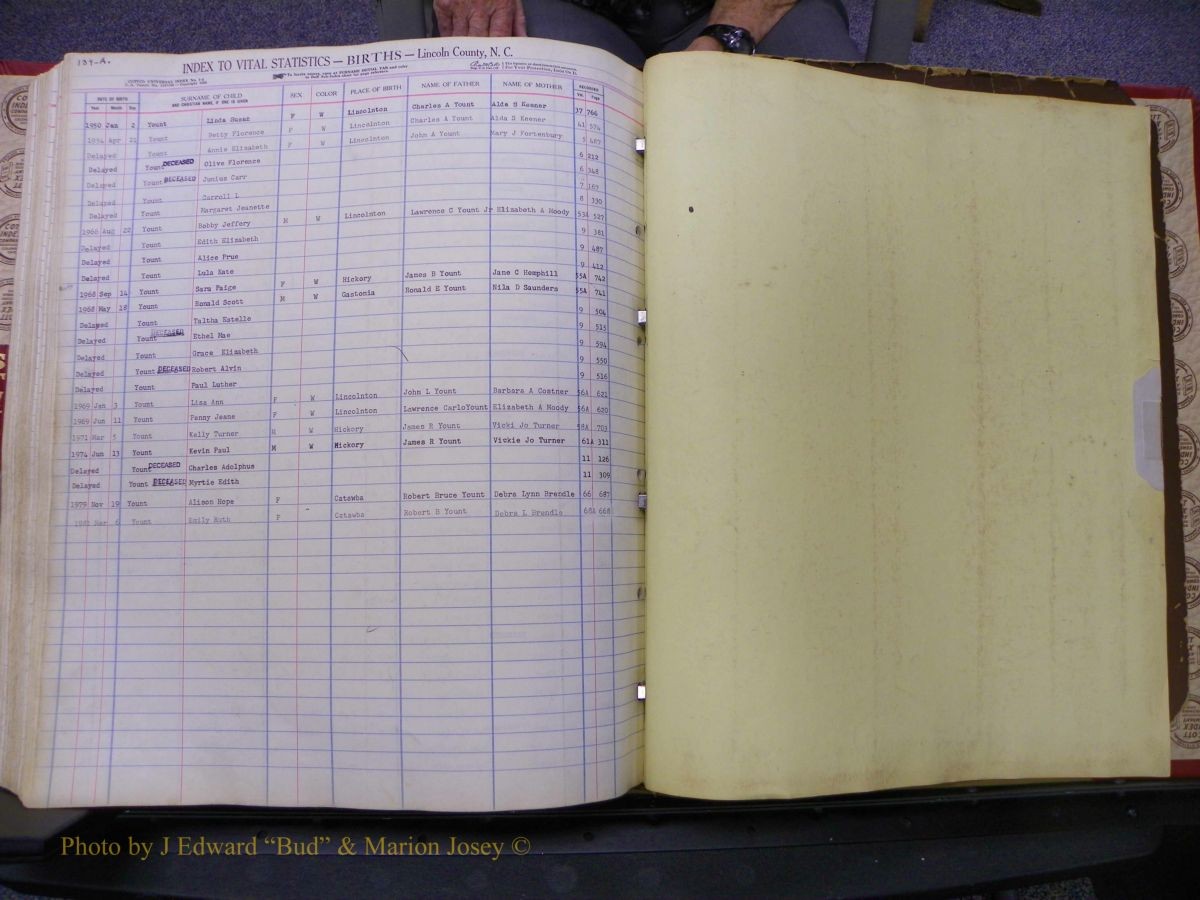 139-A.
INDEX TO VITAL STATISTICS — BIRTHS — Lincoln County, N. C.
DATE OF BIRTH SURNAME OF CHILD AND CHRISTIAN NAME, IF ONE IS GIVEN SEX COLOR PLACE OF BIRTH NAME OF FATHER NAME OF MOTHER RECORDED
Year Month Day Vol. Page
1950 Jan 2 Yount Linda Susan F W Lincolnton Charles A Yount Alda S Keener 37 766
1954 Apr 21 Yount Betty Florence F W Lincolnton Charles A Yount Alda S Keener 41 574
Delayed Yount Annie Elizabeth F W Lincolnton John A Yount Mary J Fortenbury 5 487
Delayed Yount DECEASED Olive Florence 6 212
Delayed Yount DECEASED Junius Carr 6 348
Delayed Yount Carroll L 7 167
Delayed Yount Margaret Jeanette 8 330
1966 Aug 22 Yount Bobby Jeffery M W Lincolnton Lawrence C Yount Jr Elizabeth A Moody 53A 527
Delayed Yount Edith Elizabeth 9 381
Delayed Yount Alice Prue 9 487
Delayed Yount Lula Kate 9 412
1968 Sep 14 Yount Sara Paige F W Hickory James B Yount Jane C Hemphill 55A 742
1968 May 18 Yount Ronald Scott M W Gastonia Ronald E Yount Nila D Saunders 55A 741
Delayed Yount Taltha Estelle 9 504
Delayed Yount DECEASED Ethel Mae 9 515
Delayed Yount Grace Elizabeth 9 594
Delayed Yount DECEASED Robert Alvin 9 550
Delayed Yount Paul Luther 9 516
1969 Jan 3 Yount Lisa Ann F W Lincolnton John L Yount Barbara A Costner 56A 621
1969 Jun 11 Yount Penny Jeane F W Lincolnton Lawrence CarloYount Elizabeth A Moody 56A 620
1971 Mar 5 Yount Kelly Turner M W Hickory James R Yount Vicki Jo Turner 58A 703
1974 Jun 13 Yount Kevin Paul M W Hickory James R Yount Vickie Jo Turner 61A 311
Delayed Yount DECEASED Charles Adolphus 11 126
Delayed Yount DECEASED Myrtie Edith 11 309
1979 Nov 19 Yount Alison Hope F Catawba Robert Bruce Yount Debra Lynn Brendle 66 687
1981 Mar 6 Yount Emily Ruth F Catawba Robert B Yount Debra L Brendle 68A 668
Photo by J Edward “Bud” & Marion Josey ©